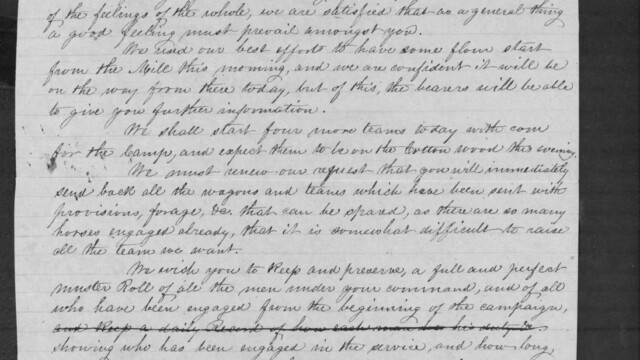 of the feelings of the whole, we are satisfied that as a general thing
a good feeling must prevail amongst you.
We used our best efforts to have some flour start
from the Mill this morning, and we are confident it will be
on the way from there today, but of this, the bearers will be able
to give you further information.
We shall start four more teams today with corn
for the Camp, and expect them to be on the Cotton wood the evening.
We must renew our request that you will immediately
send back all the wagons and teams which have been sent with
provisions, forage, &c. that can be spared, as there are so many
horses engaged already, that it is somewhat difficult to raise
all the team we want.
We wish you to Keep and preserve, a full and perfect
muster Roll of all the men under your command, and of all
who have been engaged from the beginning of the campaign,
and Keep a daily Record of how each man his duty
showing who has been engaged in the service, and how long,